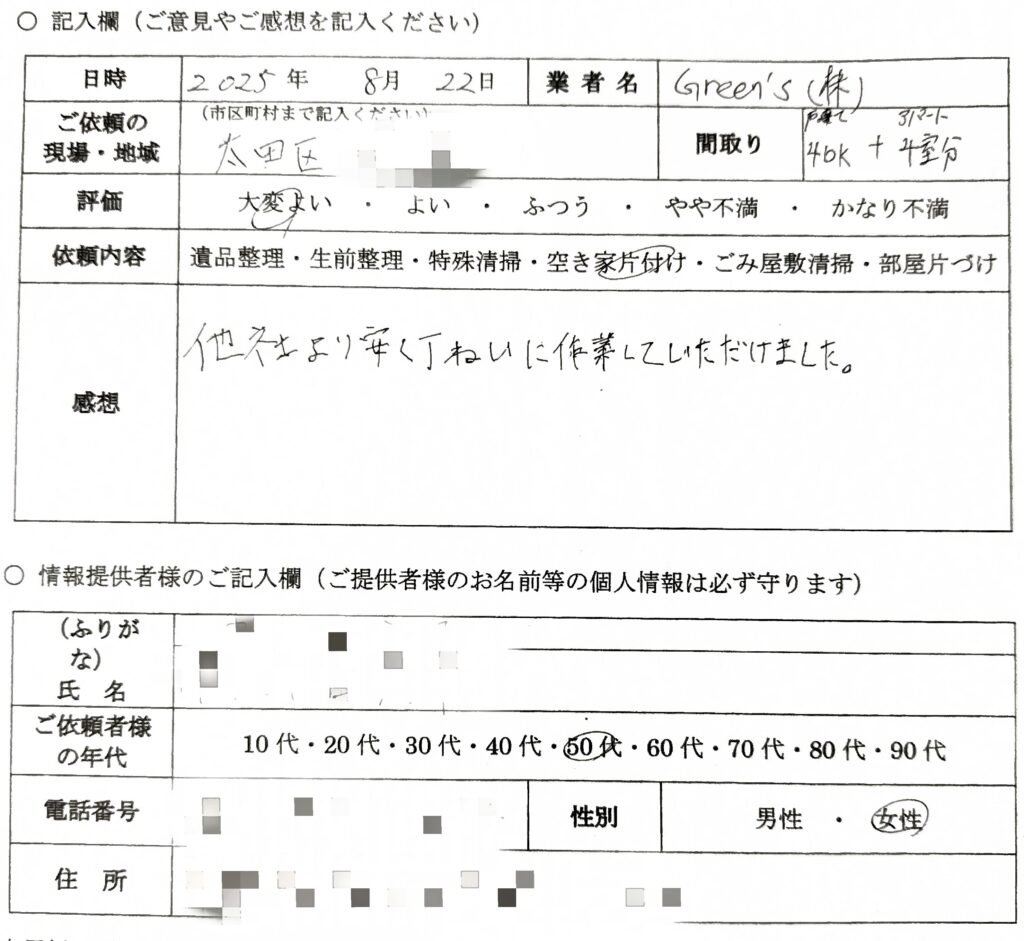 ○ 記入欄（ご意見やご感想を記入ください）
日時 2025年 8月 22日 業者名 Green's (株)
ご依頼の現場・地域 （市区町村まで記入ください） 太田区 間取り 戸建て 4DK + アパート 4室分
評価 大変よい ・ よい ・ ふつう ・ やや不満 ・ かなり不満
依頼内容 遺品整理・生前整理・特殊清掃・空き家片付け・ごみ屋敷清掃・部屋片づけ
感想 他社さまより安く丁ねいに作業していただけました。
○ 情報提供者様のご記入欄（ご提供者様のお名前等の個人情報は必ず守ります）
（ふりがな）
氏 名
ご依頼者様の年代 10代・20代・30代・40代・50代・60代・70代・80代・90代
電話番号 性別 男性 ・ 女性
住 所